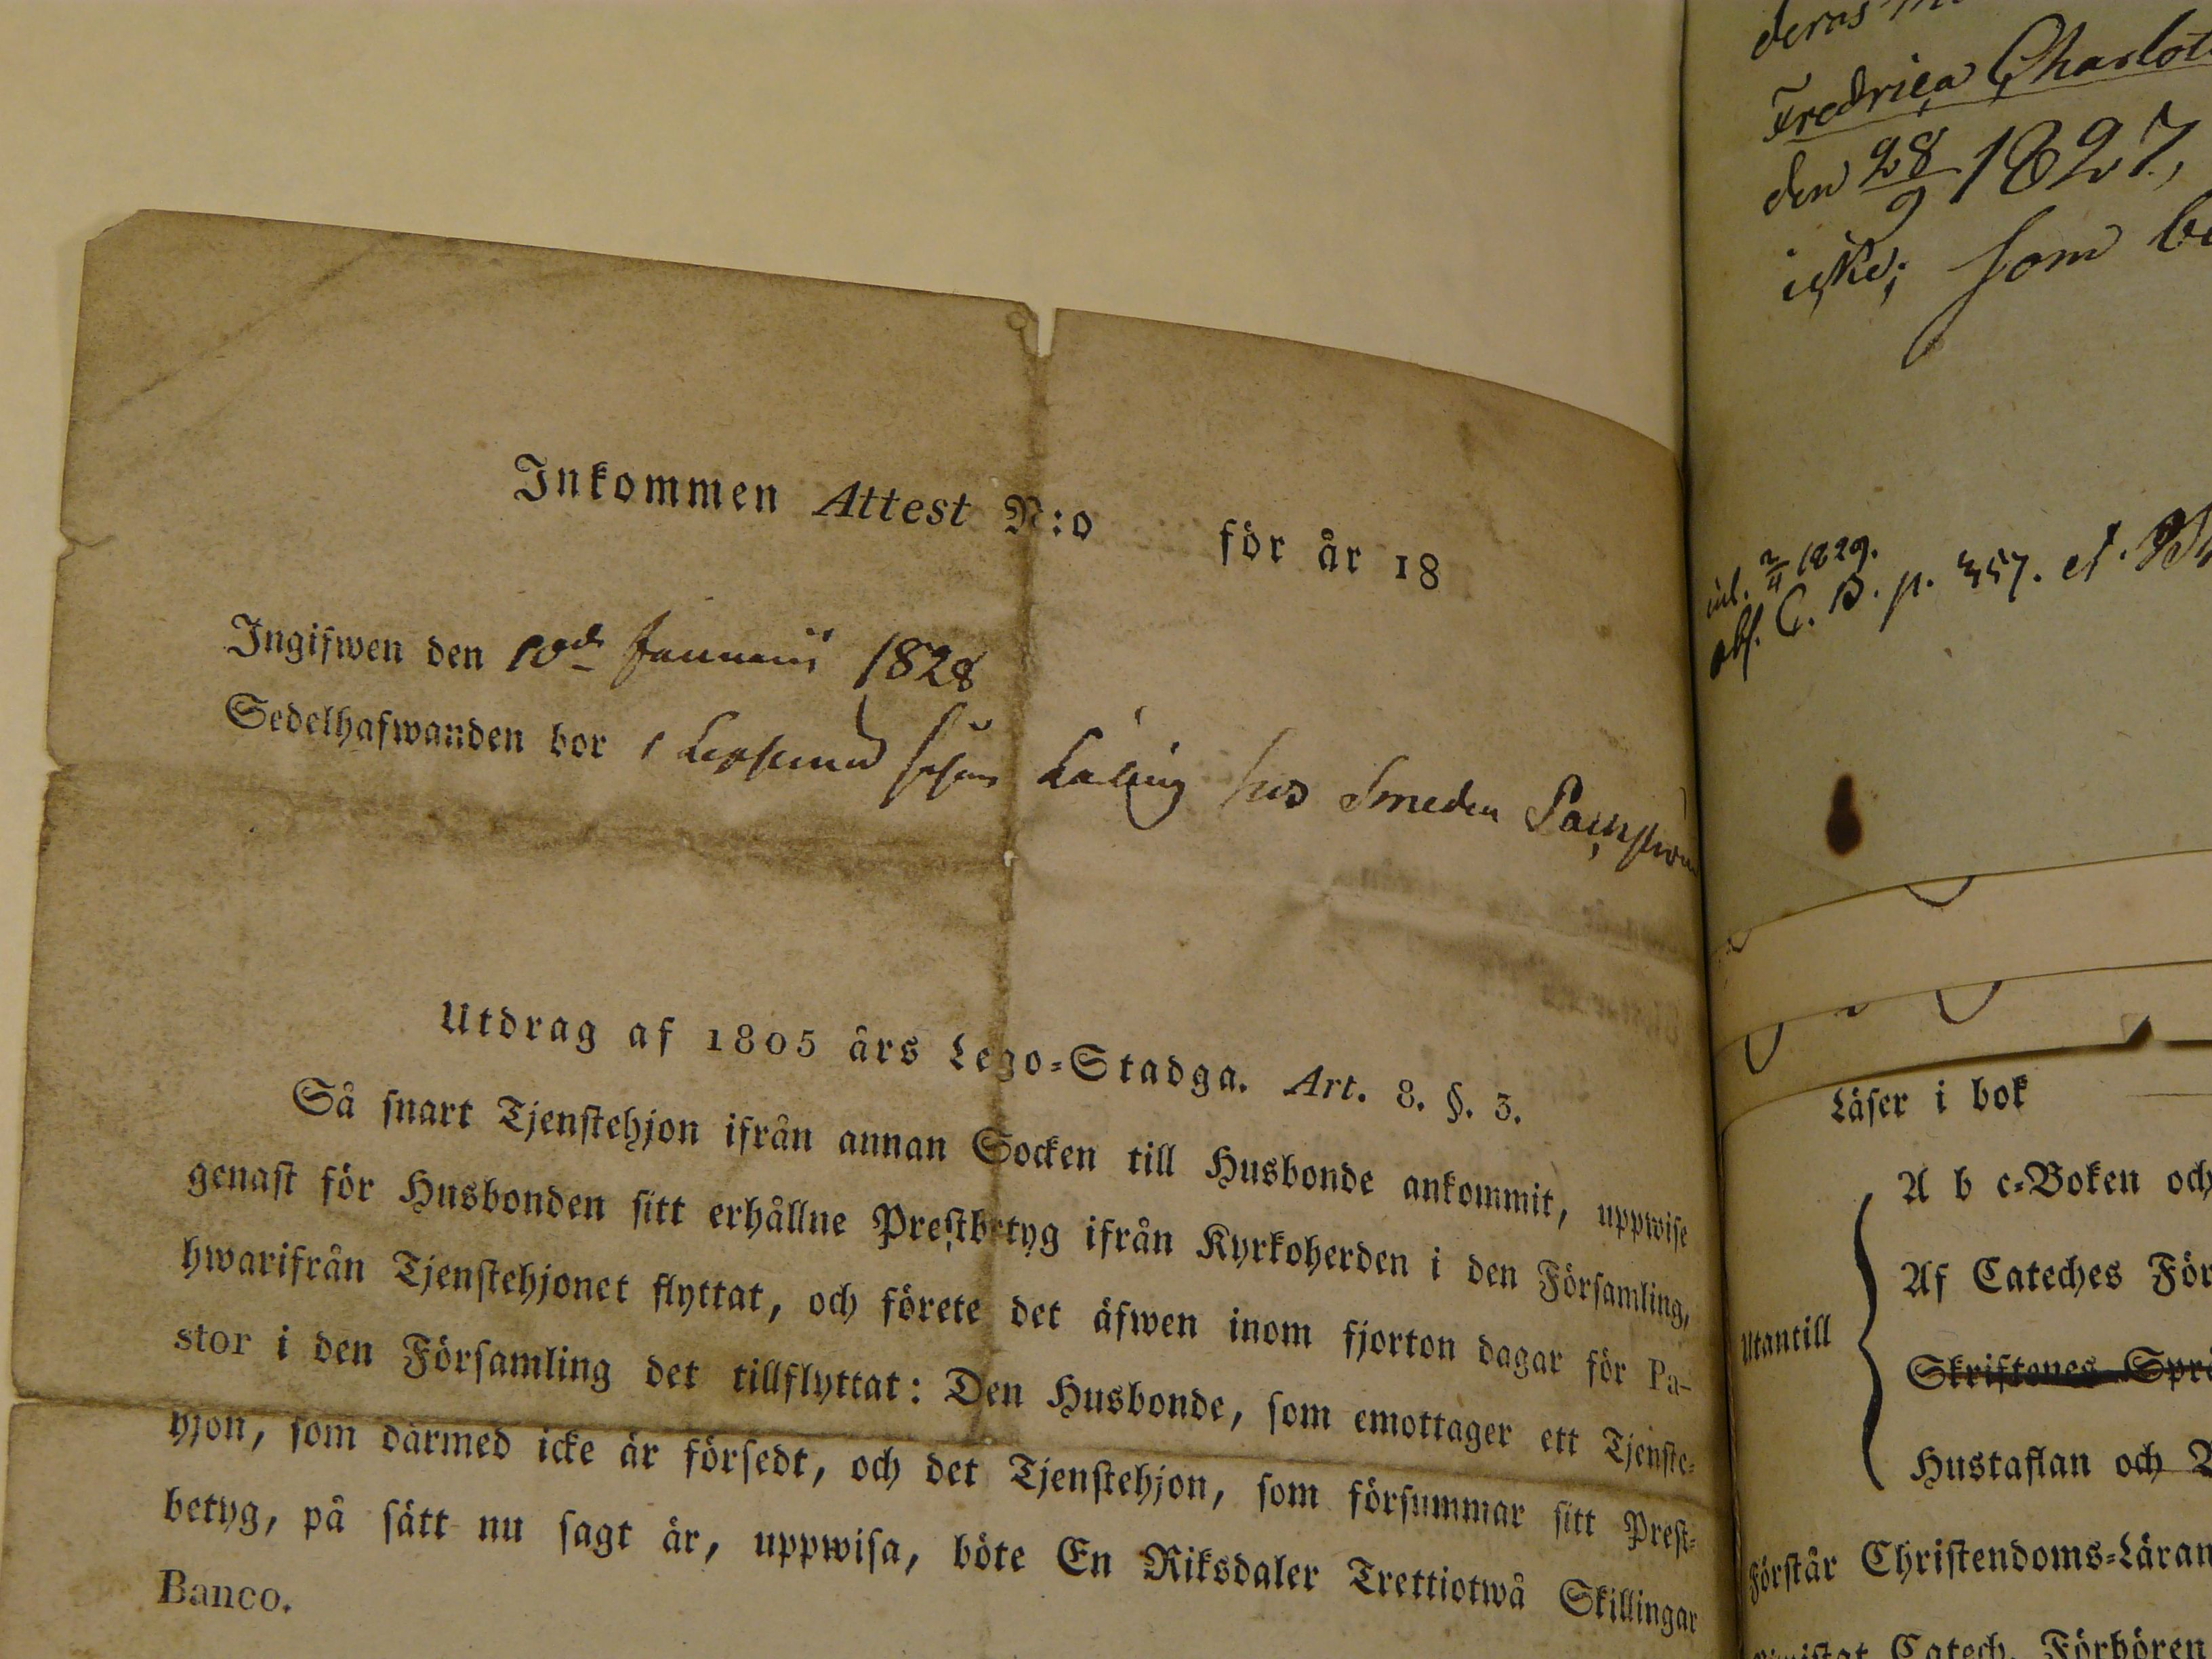 Inkommen Attest N:o för år 18
Ingifwen den 10de Januarii 1828
Sedelhafwanden bor i hos Smeden
Utdrag af 1805 års Lego-Stadga. Art. 8. §. 3.
Så snart Tjenstehjon ifrån annan Socken till Husbonde ankommit, uppwise
genast för Husbonden sitt erhållne Prestbetyg ifrån Kyrkoherden i den Församling,
hwarifrån Tjenstehjonet flyttat, och förete det äfwen inom fjorton dagar för Pa-
stor i den Församling det tillflyttat: Den Husbonde, som emottager ett Tjenste-
hjon, som därmed icke är försedt, och det Tjenstehjon, som försummar sitt Prest-
betyg, på sätt nu sagt är, uppwisa, böte En Riksdaler Trettiotwå Skillingar
Banco.
deras
Fredrica Charlot
den 28/9 1827,
icke; som
inl. 2/4 1829.
C. B. p. 357. et.
Läser i bok
A b c-Boken och
Af Cateches För
Utantill
Skriftenes Språ
Hustaflan och
Förstår Christendoms-Läran
Catech. Förhören